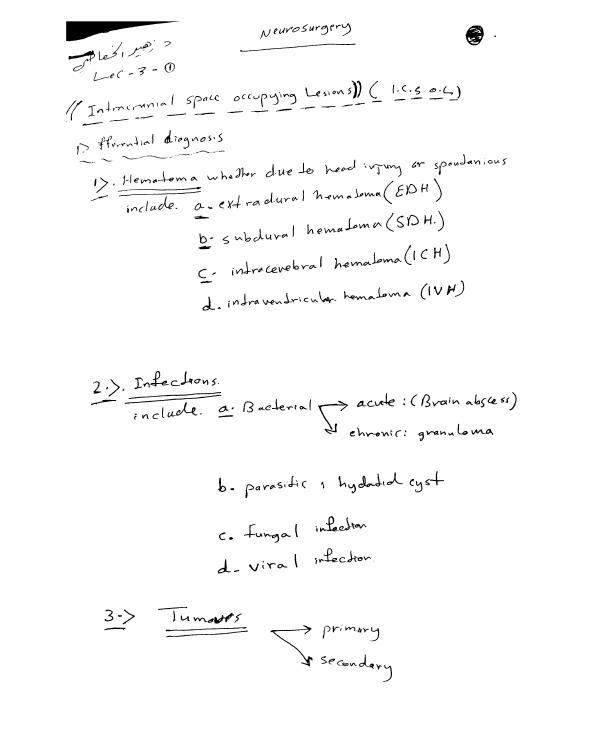 Neurosurgery
د. زهير
Lec - 3 - ①
(( Intracranial space occupying Lesions )) ( I.C.S.O.L )
Differential diagnosis
1>. Hematoma whether due to head injury or spontanious
include. a - extradural hematoma (EDH)
b - subdural hematoma (SDH.)
c - intracerebral hematoma (ICH)
d. intraventricular hematoma (IVH)
2.>. Infections.
include. a. Bacterial → acute : (Brain abscess)
→ chronic : granuloma
b - parasitic , hydatid cyst
c. fungal infection
d - viral infection
3.> Tumours
→ primary
→ secondary